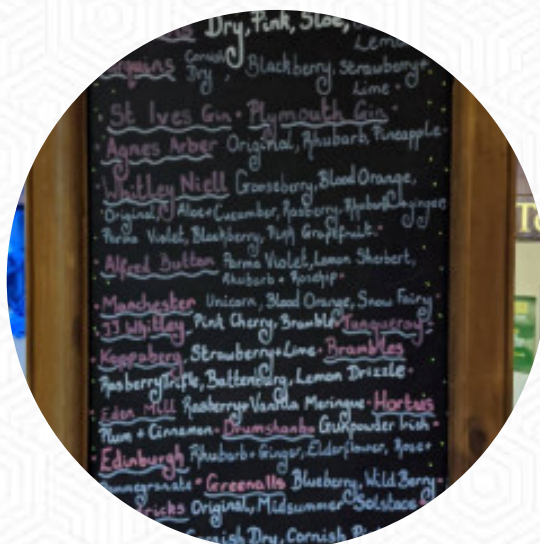 Dry, Pink, Sloe,
Lemon
Cornish
Dry, Blackberry, Strawberry+
Lime
St Ives Gin • Plymouth Gin
Agnes Arber Original, Rhubarb, Pineapple
Whitley Niell Gooseberry, Blood Orange,
Original, Aloe+Cucumber, Raspberry, Rhubarb+ginger
Parma Violet, Blackberry, Pink Grapefruit •
Alfred Button Parma Violet, Lemon Sherbert,
Rhubarb + Rosehip •
• Manchester Unicorn, Blood Orange, Snow Fairy
• JJ Whitley Pink Cherry, Bramble • Tanqueray •
• Koppaberg Strawberry+Lime • Brambles
Raspberry Trifle, Battenburg, Lemon Drizzle •
• Eden Mill Rasberry+Vanilla Meringue • Hortus
Plum + Cinnamon • Drumshanbo Gunpowder Irish •
• Edinburgh Rhubarb + Ginger, Elderflower, Rose+
Pomegranate • Greenalls Blueberry, Wild Berry •
Original, Midsummer Solstace
Cornish Dry, Cornish